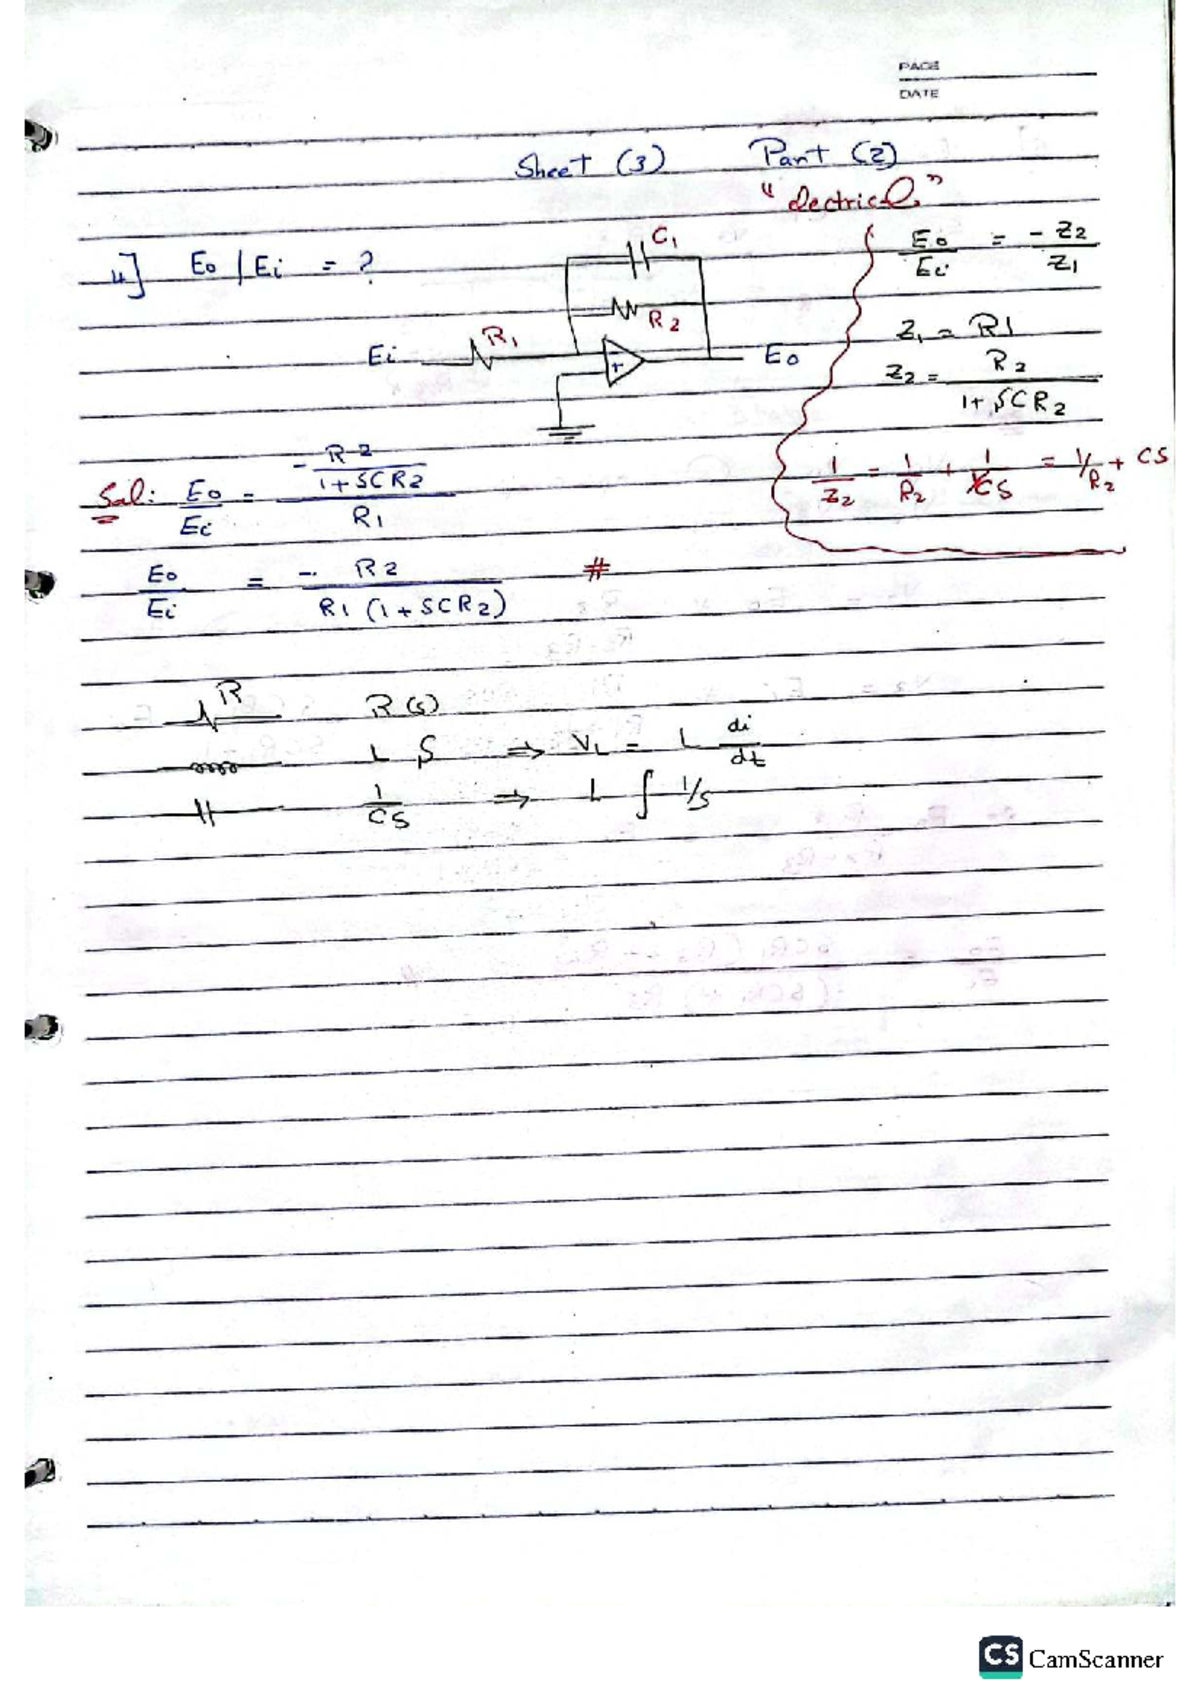 PAGE
DATE
Sheet (3) Part (2)
"electrical"
4] Eo / Ei = ?
C1
R2
R1
Ei
+
Eo
Eo/Ei = -Z2/Z1
Z1 = R1
Z2 = R2/(1+SCR2)
1/Z2 = 1/R2 + 1/(1/CS) = 1/R2 + CS
Sol: Eo/Ei = (-R2/(1+SCR2))/R1
Eo/Ei = - R2/(R1 (1+SCR2)) #
R R(s)
L S ⇒ VL = L di/dt
1/CS ⇒ L ∫ 1/S
CS CamScanner